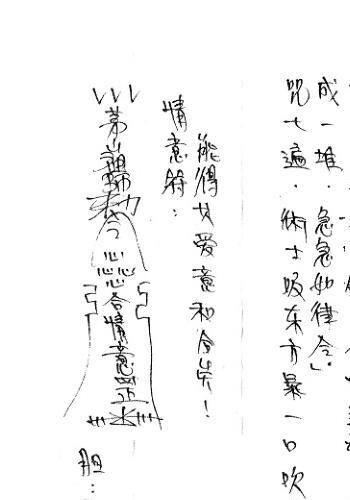 成一堆．急急如律令。」
咒七遍．術士吸东方暴一口吹
能得女爱意和合矣！
情意符：
茅山祖師勅令
心心心合情意
胆：